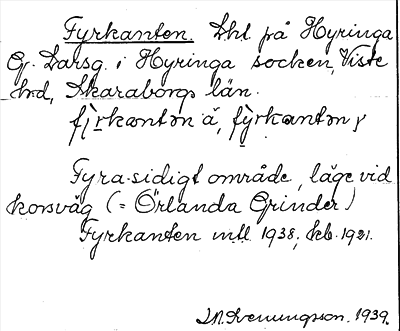 Fyrkanten. Lht på Hyringa
Gj. Larsg. i Hyringa socken, Viste
hd, Skaraborgs län.
fỳrkantən å, fỳrkantən
Fyra-sidigt område, läge vid
korsväg (= Örlanda Grinder)
Fyrkanten mtl 1938, kb. 1921.
1939.